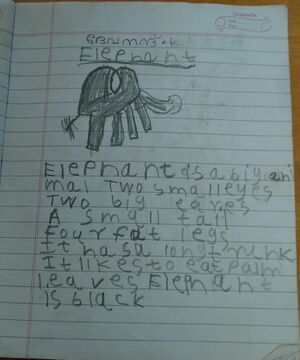 ദേവനന്ദ് . K
Elephant
Elephant is a big ani
mal Two small eyes
Two big eares
A small tail
Four fat legs
It has a long trunk
It likes to eat palm
leaves Elephant
is black